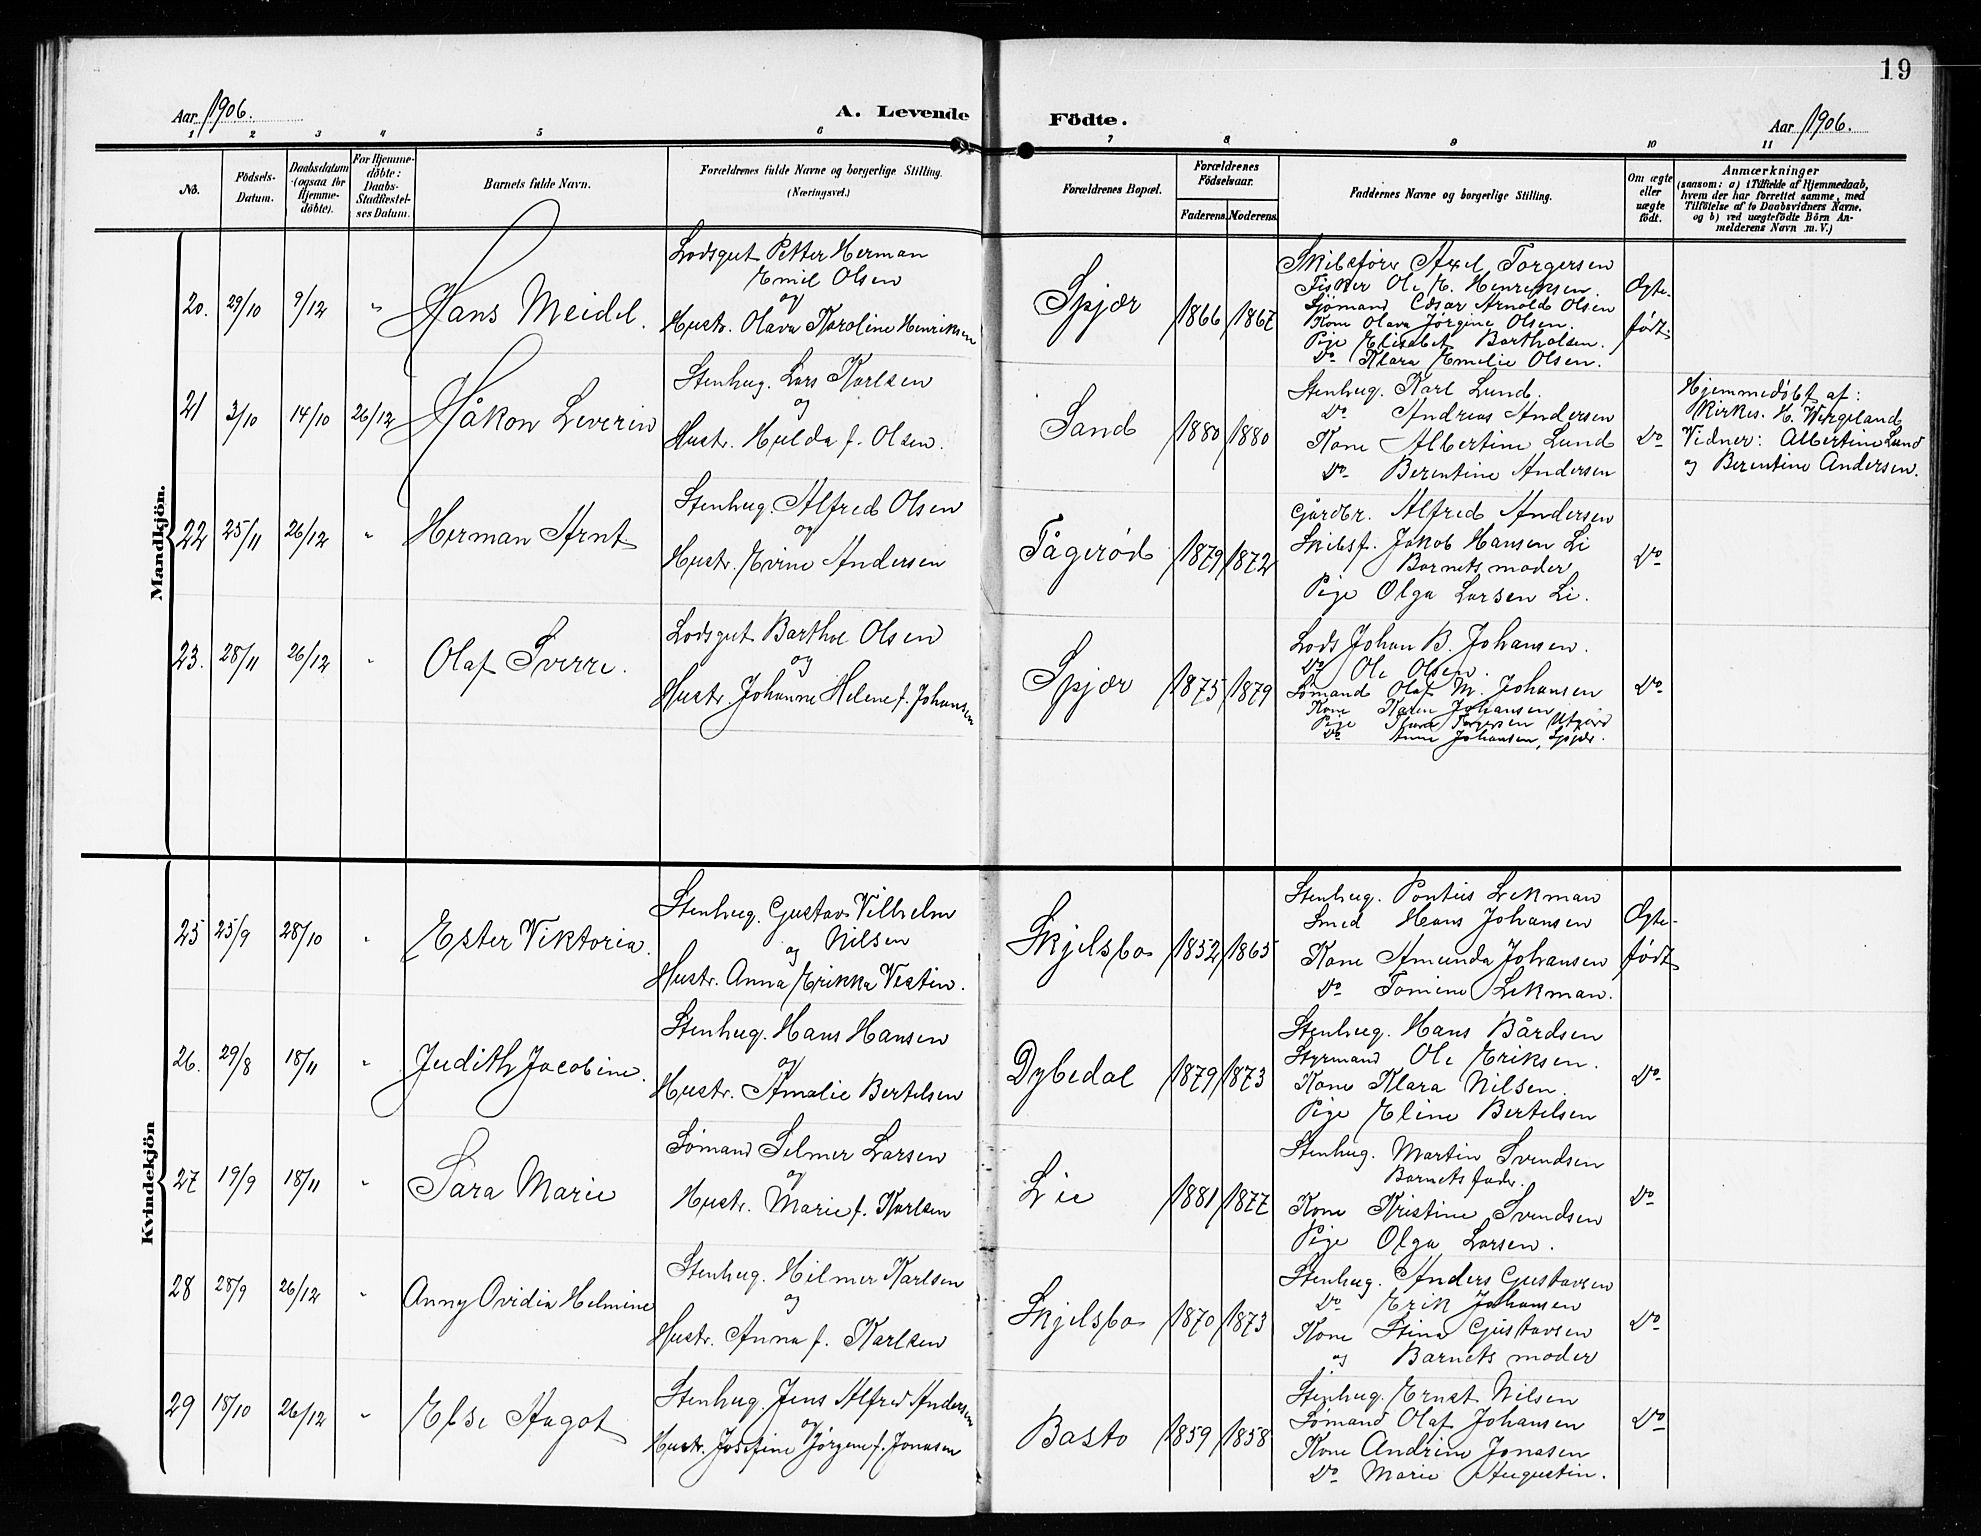 19
Aar 1906.
A. Levende Födte.
Aar 1906.
1 2 3 4 5 6 7 8 9 10 11
No.
Födsels-Datum.
Daabsdatum (ogsaa for Hjemme-döbte).
For Hjemme-döbte: Daabs-Stadfæstel-ses Datum.
Barnets fulde Navn.
Forældrenes fulde Navne og borgerlige Stilling.
(Næringsvei.)
Forældrenes Bopæl.
Forældrenes Födselsaar.
Faderens. Moderens.
Faddernes Navne og borgerlige Stilling.
Om ægte eller uægte födt.
Anmærkninger
(saasom: a) i Tilfælde af Hjemmedaab,
hvem der har forrettet samme, med
Tilföielse af to Daabsvidners Navne,
og b) ved uægtefödte Börn An-
melderens Navn m. V.)
Mandkjön.
20. 29/10 9/12 " Hans Meidel.
Lodsgut Petter Herman
Emil Olsen
og
Hustr. Olava Karoline Henriksen
Spjær 1866 1867
Skibsfører Axel Torgersen
Fisker Ole E. Henriksen.
Sjömand Cæsar Arnold Olsen
Kone Olava Jørgine Olsen.
Pige Elisabet Bartholsen.
Do Klara Emelie Olsen.
Ægte-
født.
21 3/10 14/10 26/12 Håkon Leverin
Stenhug. Lars Karlsen
og
Hustr. Hulda f. Olsen.
Sand 1880 1880
Stenhug. Karl Lund.
Do Andreas Andersen
Kone Albertine Lund
Do Berentine Andersen
Do
Hjemmedøbt af:
Kirkes. H. Wergeland
Vidner: Albertine Lund
og Berentine Andersen.
22 25/11 26/12 " Herman Arnt
Stenhug. Alfred Olsen
og
Hustr. Evine Andersen
Tågerød 1879 1872
Gårdbr. Alfred Andersen
Skibsf. Jakob Hansen Li
Barnets moder
Pige Olga Larsen Li.
Do
23. 28/11 26/12 " Olaf Sverre.
Lodsgut Barthol Olsen
og
Hustr. Johanne Helene f. Johansen
Spjær 1875 1879
Lods Johan B. Johansen.
Do Ole Olsen.
Sømand Olaf M. Johansen
Kone Karen Johansen
Pige Torgersen Utgård
Do Anne Johansen, Spjær.
Do
Kvindekjön
25 25/9 28/10 " Ester Viktoria.
Stenhug. Gustav Vilhelm
og Nilsen
Hustr. Anna Erikka Vestin.
Skjelsbo 1852 1865
Stenhug. Pontus Lekman
Smed Hans Johansen
Kone Amunda Johansen
Do Tomine Lekman.
Ægte-
født
26. 29/8 18/11 " Judith Jacobine.
Stenhug. Hans Hansen
og
Hustr. Amalie Bertelsen
Dybedal 1879 1873
Stenhug. Hans Bårdsen
Styrmand Ole Eriksen.
Kone Klara Nilsen.
Pige Eline Bertelsen
Do
27 19/9 18/11 " Sara Marie
Sømand Selmer Larsen
og
Hustr. Marie f. Karlsen
Lie 1881 1877
Stenhug. Martin Svendsen
Barnets fader.
Kone Kristine Svendsen
Pige Olga Larsen.
Do
28 28/9 26/12 " Anny Ovidia Helmine
Stenhug. Hilmer Karlsen
og
Hustr. Anna f. Karlsen
Skjelsbo 1870 1873
Stenhug. Anders Gustavsen
Do Erik Johansen
Kone Stina Gustavsen
og Barnets moder
Do
29 18/10 26/12 " Else Aagot
Stenhug. Jens Alfred Andersen
og
Hustr. Josefine Jørgene f. Jonasen
Basto 1859 1858
Stenhug. Ernst Nilsen
Sømand Olaf Johansen
Kone Andrine Jonasen
Do Marie Augustin.
Do